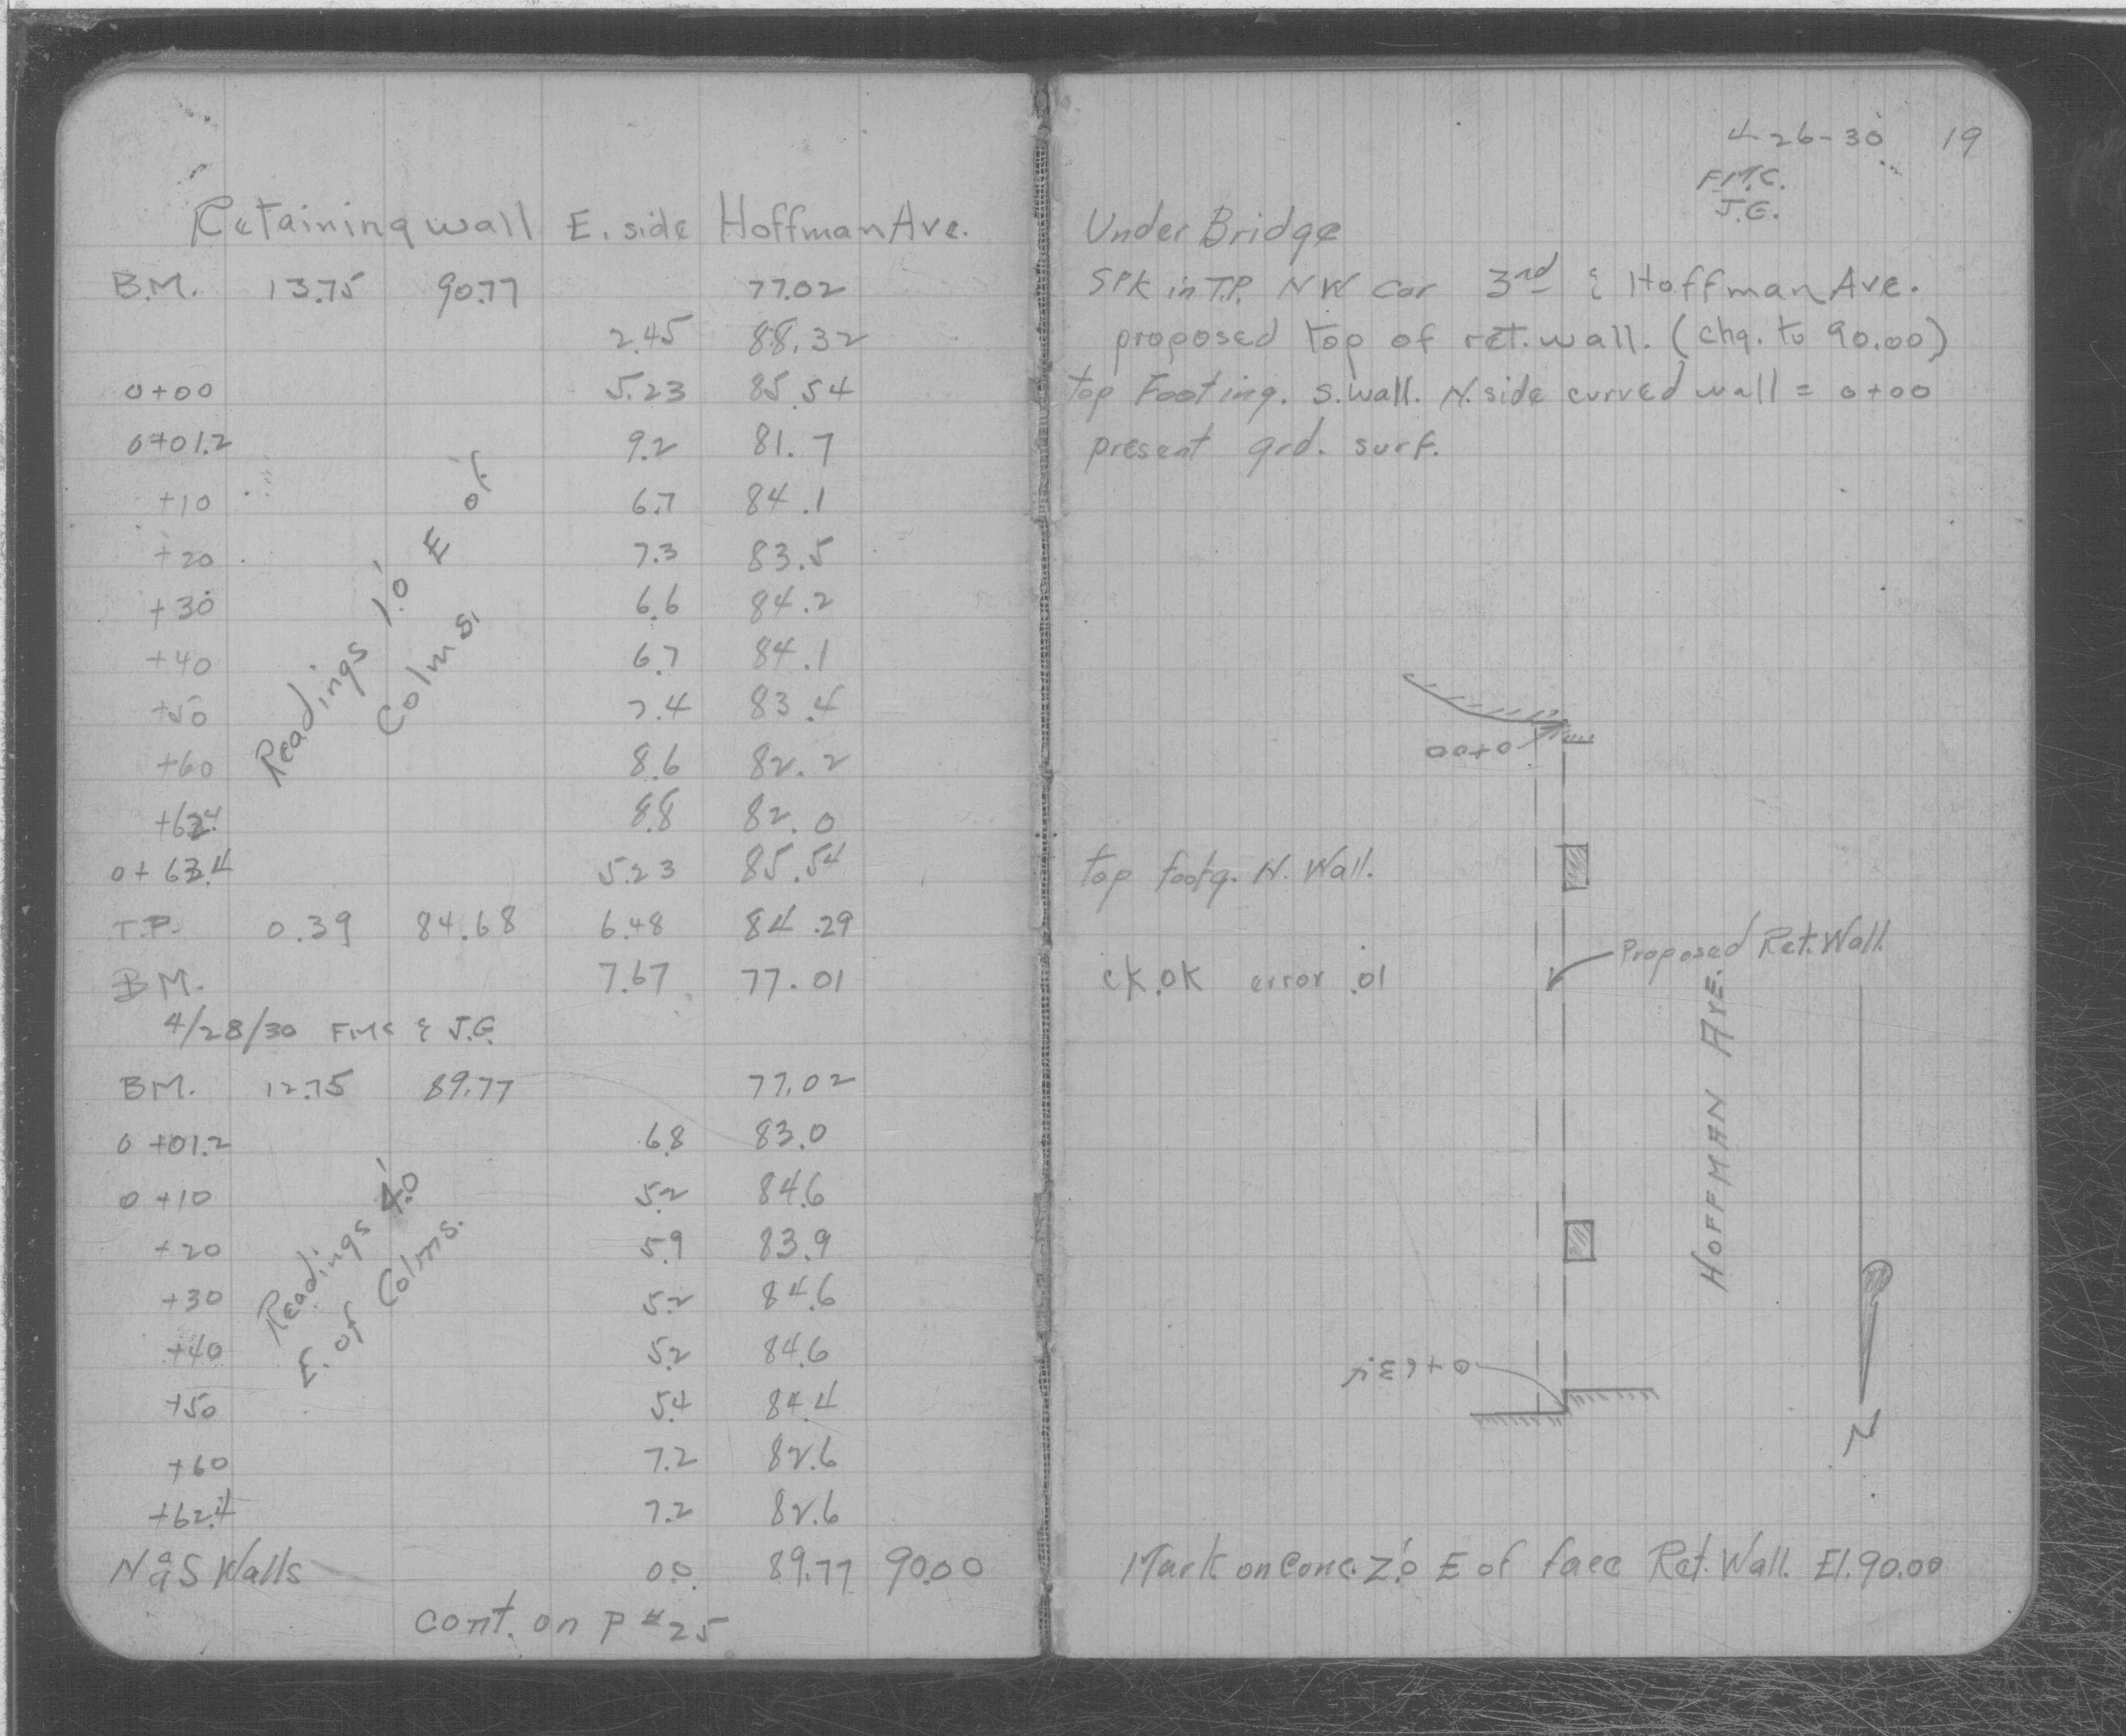 Retaining wall E. side Hoffman Ave.
B.M. 13.75 90.77 77.02
2.45 88.32
0+00 5.23 85.54
0+01.2 9.2 81.7
+10 6.7 84.1
+20 7.3 83.5
+30 6.6 84.2
+40 6.7 84.1
+50 7.4 83.4
+60 8.6 82.2
+62.4 8.8 82.0
0+63.4 5.23 85.54
T.P. 0.39 84.68 6.48 84.29
B.M. 7.67 77.01
Readings 1.0' E of
Colms.
4/28/30 FMC & J.G.
B.M. 12.75 89.77 77.02
0+01.2 6.8 83.0
0+10 5.2 84.6
+20 5.9 83.9
+30 5.2 84.6
+40 5.2 84.6
+50 5.4 84.4
+60 7.2 82.6
+62.4 7.2 82.6
Readings 4.0'
E. of Colms.
N & S Walls 0.0 89.77 90.00
Cont. on P #25
4-26-30 19
F.M.C.
J.G.
Under Bridge
Spk in T.P. NW Cor 3rd & Hoffman Ave.
proposed top of ret. wall. (chg. to 90.00)
top Footing. S. wall. N. side curved wall = 0+00
present grd. surf.
0+00
top footg. N. Wall.
Proposed Ret. Wall.
ck. OK error .01
HOFFMAN AVE.
N
Mark on Conc. 2.0' E of face Ret. Wall. El. 90.00